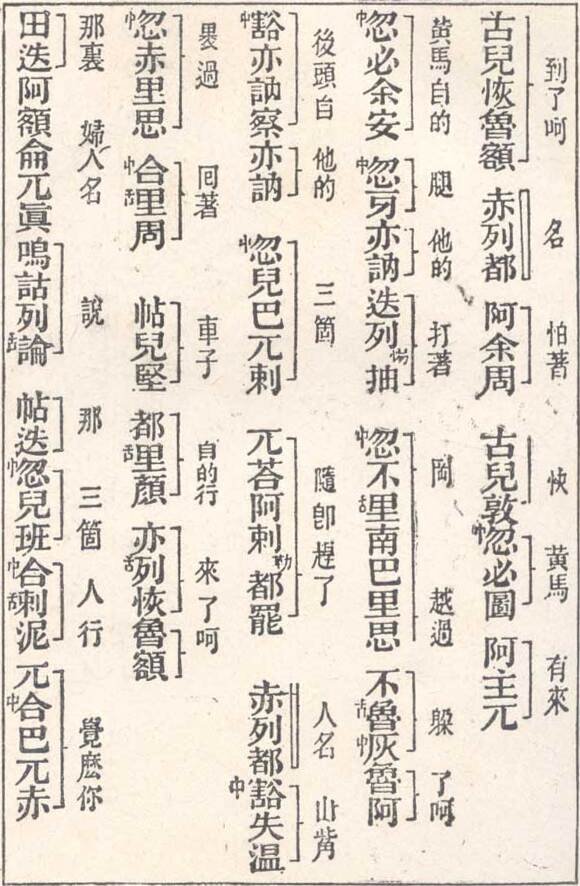 到了呵 名 怕著 快 黃馬 有來
古兒恢魯額 赤列都 阿余周 古兒敦中忽必圖 阿主兀
黃馬自的 腿 他的 打著 岡 越過 躱 了呵
中忽必余安 中忽牙亦訥 迭列惕抽 中忽不舌里南巴里思 不舌魯中灰魯阿
後頭自 他的 三箇 隨卽趕了 人名 山觜
中豁亦訥察亦訥 中忽兒巴兀剌 兀荅阿剌勒都罷 赤列都中豁失溫
褁過 回著 車子 自的行 來了呵
中忽赤里思 中合舌里周 帖兒堅 都舌里顏 亦舌列恢魯額
那裏 婦人名 說 那 三箇 人行 覺麽你
田迭阿額侖兀眞嗚詁列舌論 帖迭中忽兒班中合舌剌泥 兀中合巴兀赤